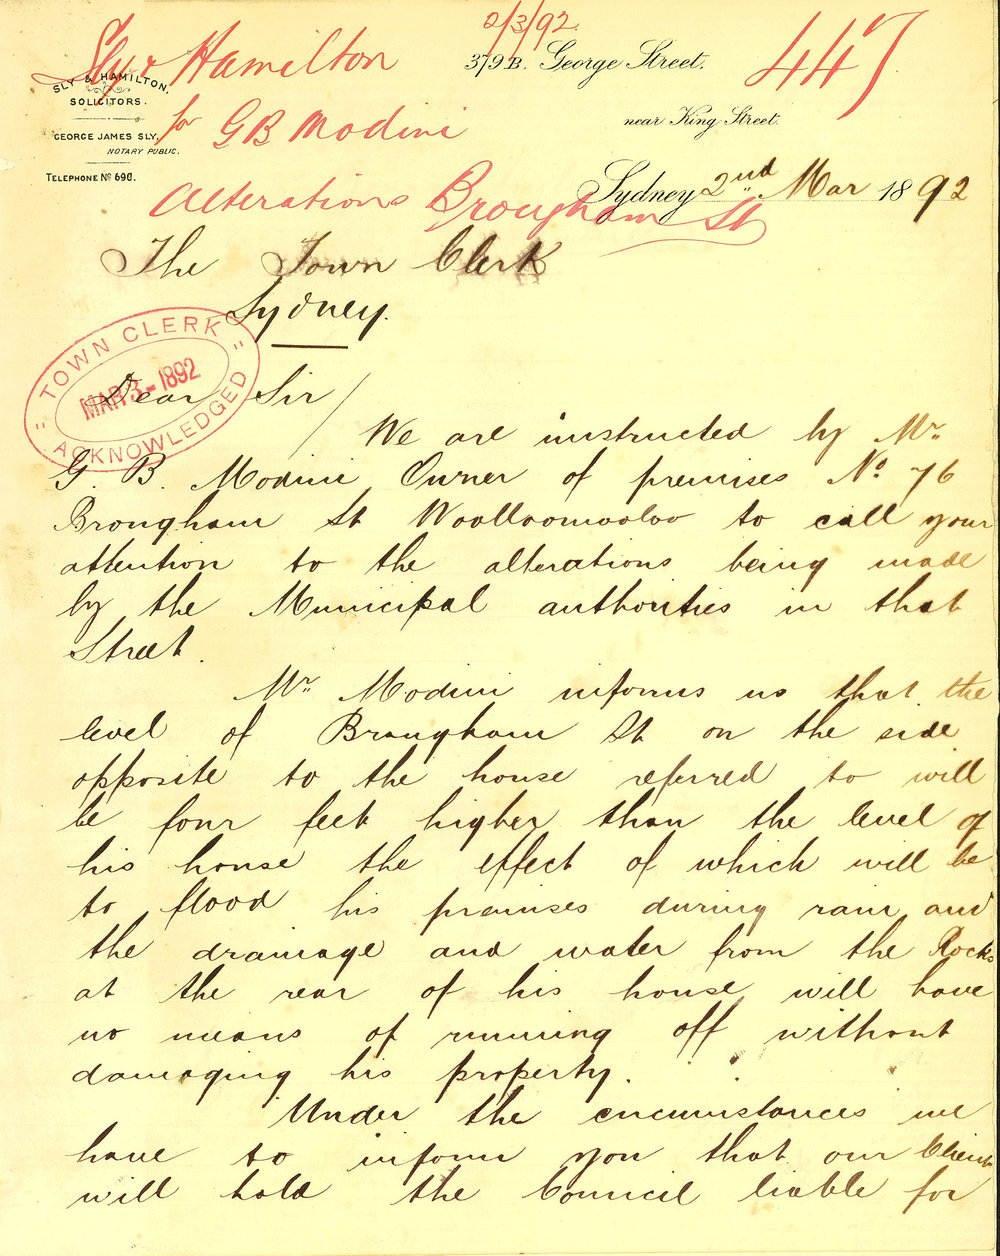 2/3/92.
Sly & Hamilton
447
for G B Modini
Alterations Brougham St
SLY & HAMILTON,
SOLICITORS.
GEORGE JAMES SLY,
NOTARY PUBLIC.
TELEPHONE No 690.
379B. George Street.
near King Street.
Sydney 2nd Mar 1892
The Town Clerk
Sydney.
TOWN CLERK
MAR 3 - 1892
ACKNOWLEDGED
Dear Sir/
We are instructed by Mr
G. B. Modini Owner of premises No. 76
Brougham St Woolloomooloo to call your
attention to the alterations being made
by the Municipal authorities in that
Street.
Mr Modini informs us that the
level of Brougham St on the side
opposite to the house referred to will
be four feet higher than the level of
his house the effect of which will be
to flood his premises during rain and
the drainage and water from the Rocks
at the rear of his house will have
no means of running off without
damaging his property.
Under the circumstances we
have to inform you that our Client
will hold the Council liable for